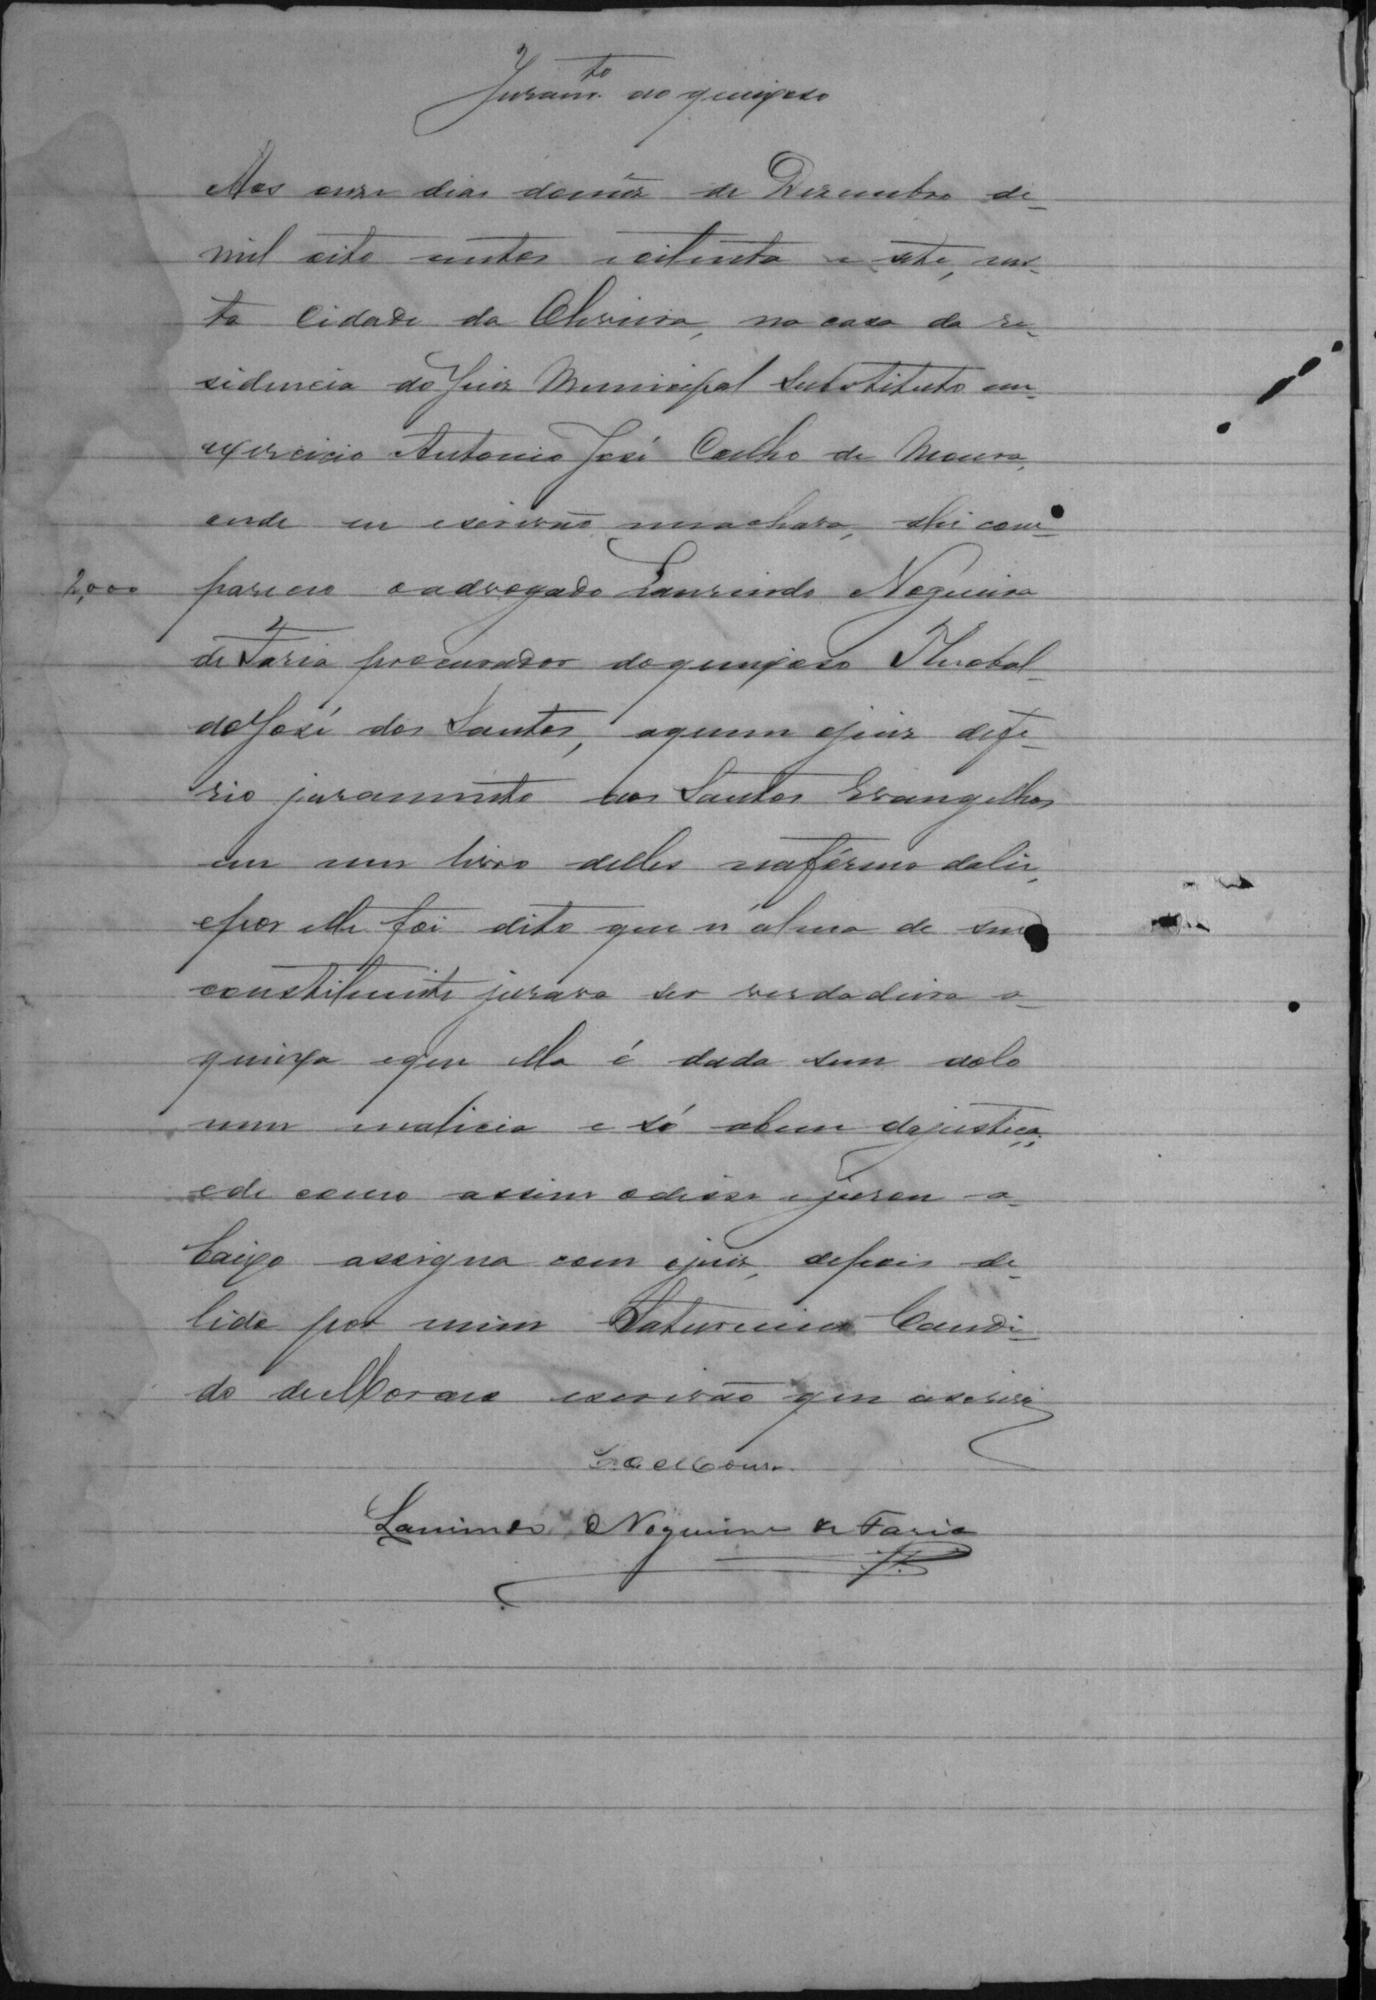 Juram.to ao queixoso
Aos onze dias do mêz de Dezembro de
mil oito centos e oitenta e sete, nes-
ta Cidade da Oliveira, na casa da re-
sidencia do Juiz Municipal Substituto em
exercicio Antonio José Coelho de Moura,
onde eu escrivão me achava, ahi com-
2,000 pareceo o advogado Laurindo Nogueira
de Faria procurador do queixoso Theobal-
do José dos Santos, a quem o juiz defe-
rio juramento aos Santos Evangelhos
em um livro delles na fórma da lei,
e por elle foi dito que n'alma de seu
constituinte jurava ser verdadeira a
queixa e que ella é dada sem dolo
nem malicia e só a bem da justiça;
e de como assim o disse e jurou a-
baixo assigna com o juiz, depois de
lido por mim Saturnino Candi-
do de Moraes escrivão que o escrevi
Moura
Laurindo Nogueira de Faria